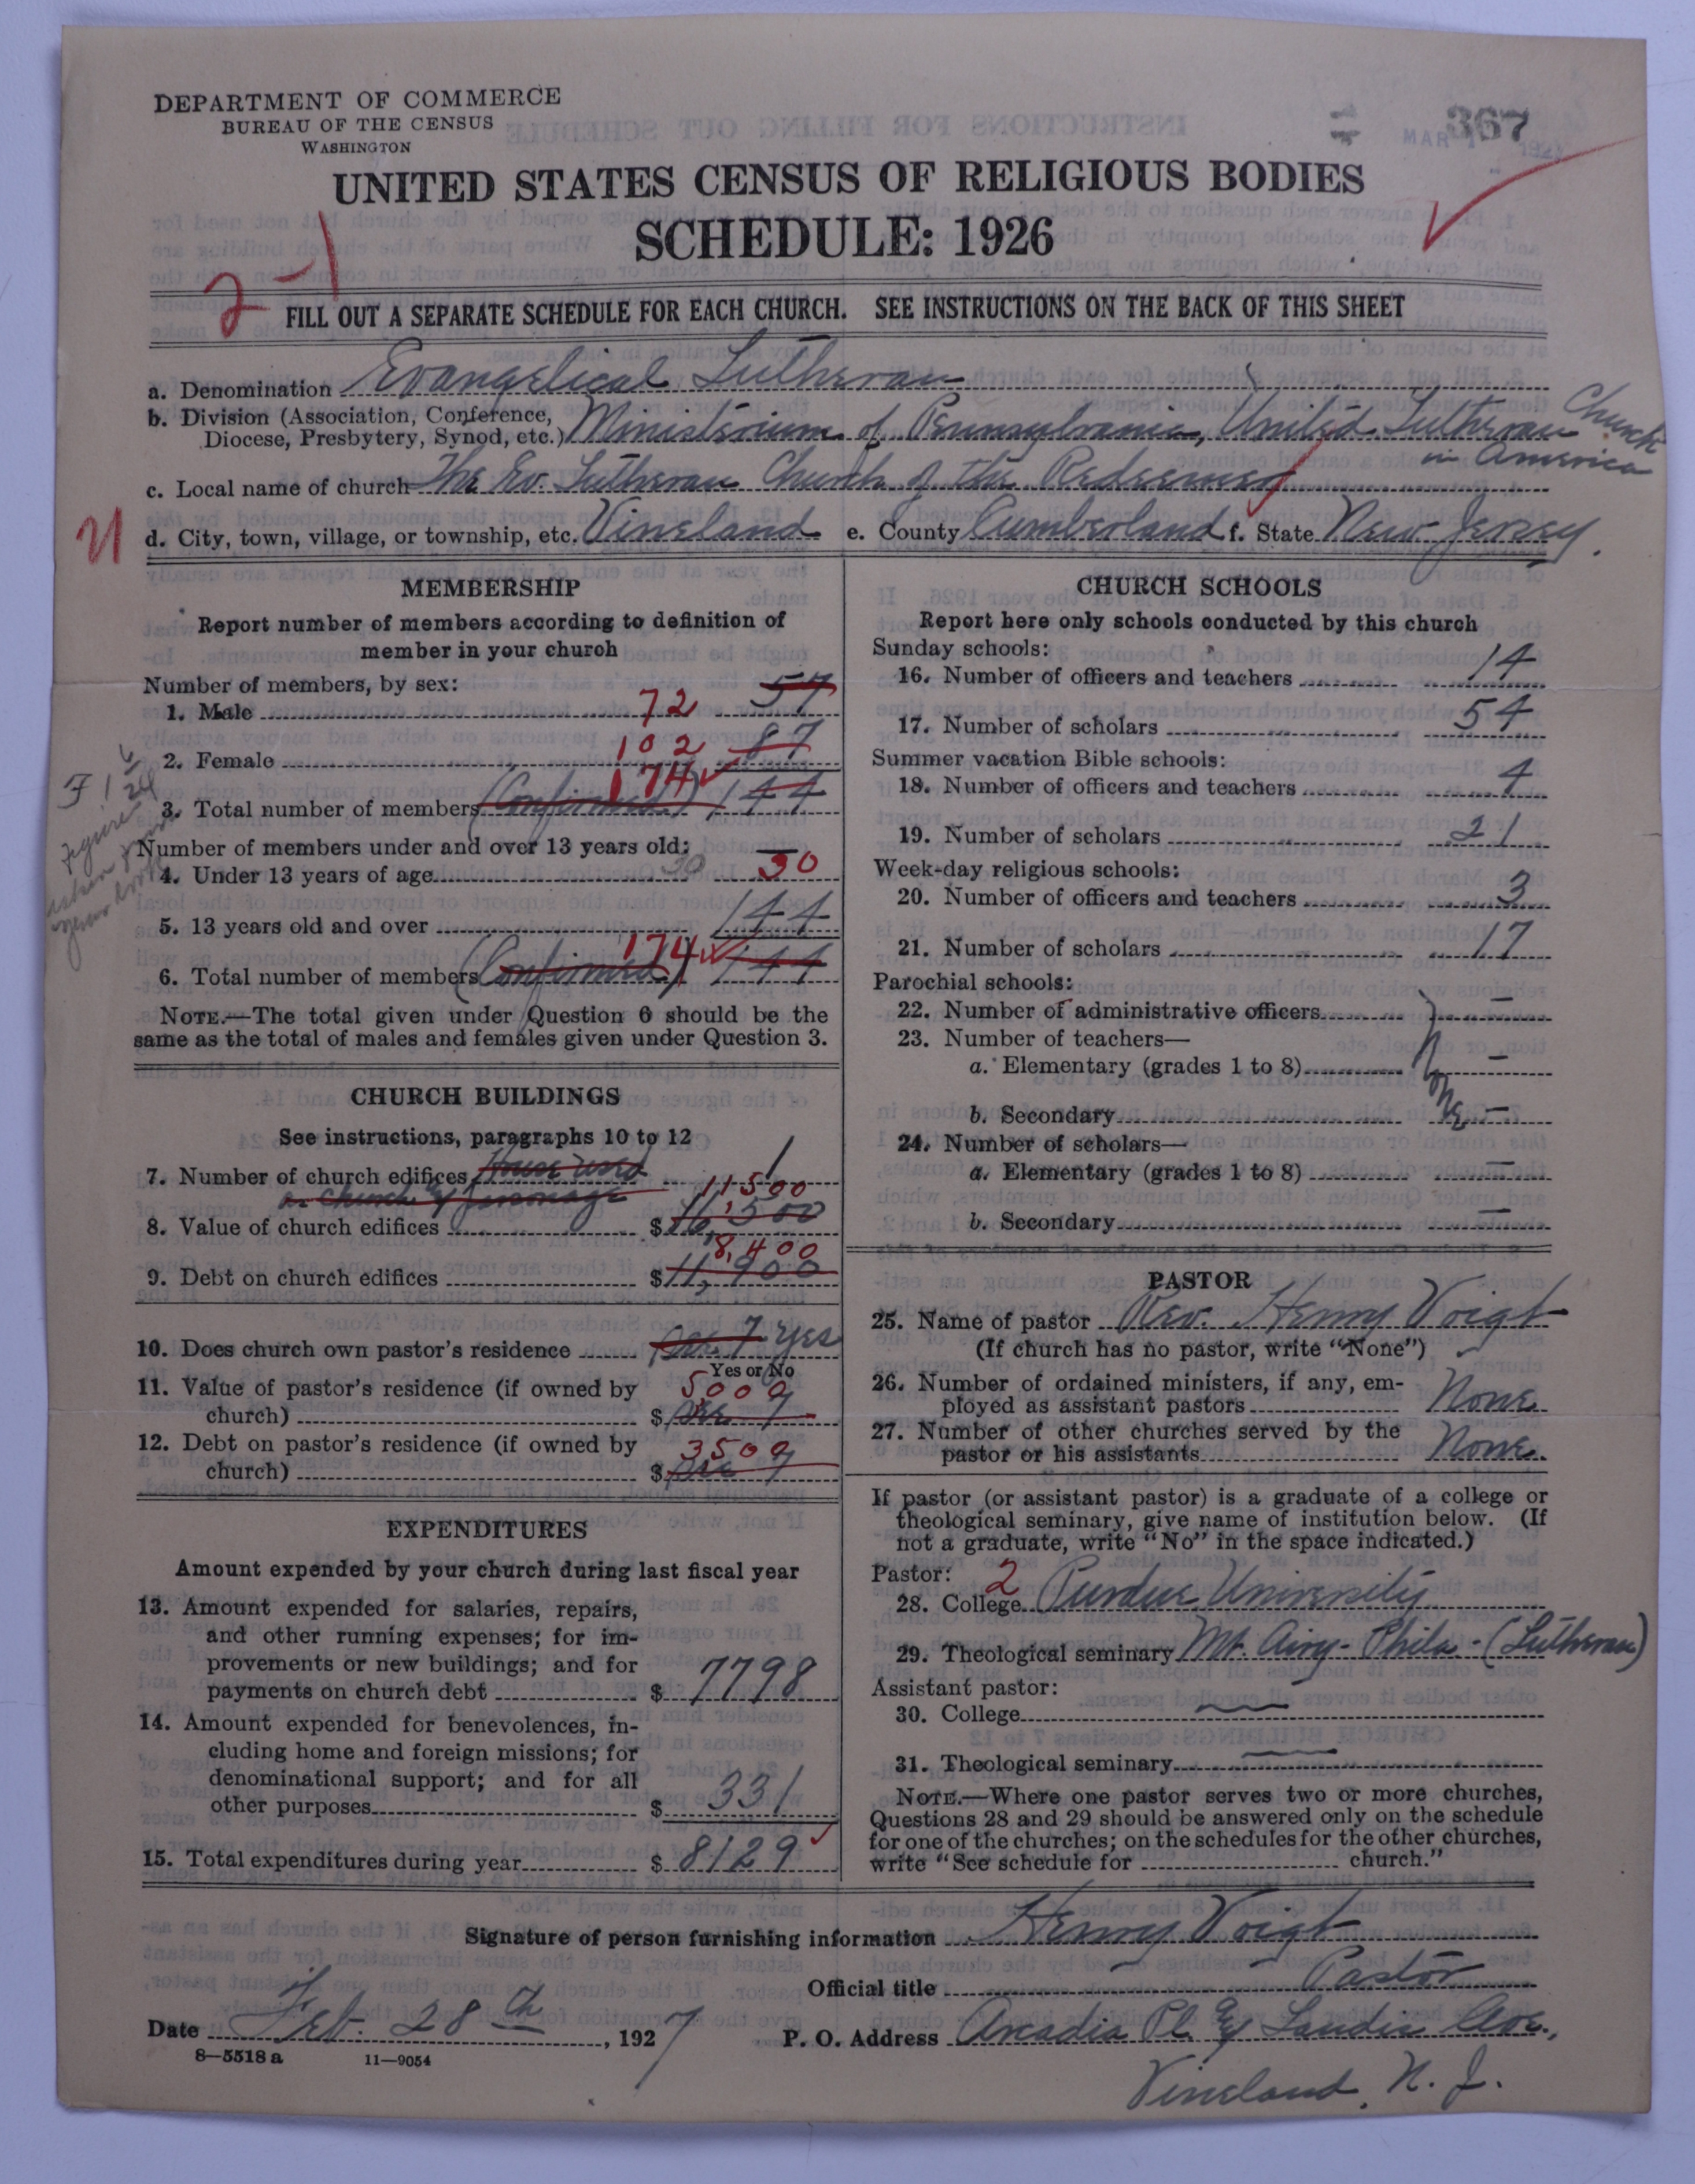 DEPARTMENT OF COMMERCE
BUREAU OF THE CENSUS
WASHINGTON
367
MAR
UNITED STATES CENSUS OF RELIGIOUS BODIES
SCHEDULE: 1926
2-1
FILL OUT A SEPARATE SCHEDULE FOR EACH CHURCH. SEE INSTRUCTIONS ON THE BACK OF THIS SHEET
a. Denomination Evangelical Lutheran
b. Division (Association, Conference, Diocese, Presbytery, Synod, etc.) Ministerium of Pennsylvania, United Lutheran Church in America
c. Local name of church The Ev. Lutheran Church of the Redeemer
d. City, town, village, or township, etc. Vineland e. County Cumberland f. State New Jersey.
MEMBERSHIP
Report number of members according to definition of
member in your church
Number of members, by sex:
1. Male 72 57
2. Female 102 87
3. Total number of members (Confirmed) 174 144
Number of members under and over 13 years old:
4. Under 13 years of age 30 30
5. 13 years old and over 144
6. Total number of members (Confirmed) 174 144
NOTE.—The total given under Question 6 should be the
same as the total of males and females given under Question 3.
CHURCH BUILDINGS
See instructions, paragraphs 10 to 12
7. Number of church edifices House used 1
as church & parsonage
8. Value of church edifices $ 11500 16,500
9. Debt on church edifices $ 8,400 11,900
10. Does church own pastor's residence See 7 Yes
Yes or No
11. Value of pastor's residence (if owned by
church) $ 5000 See 7
12. Debt on pastor's residence (if owned by
church) $ 3500 See 7
EXPENDITURES
Amount expended by your church during last fiscal year
13. Amount expended for salaries, repairs,
and other running expenses; for im-
provements or new buildings; and for
payments on church debt $ 7798
14. Amount expended for benevolences, in-
cluding home and foreign missions; for
denominational support; and for all
other purposes $ 331
15. Total expenditures during year $ 8129
CHURCH SCHOOLS
Report here only schools conducted by this church
Sunday schools:
16. Number of officers and teachers 14
17. Number of scholars 54
Summer vacation Bible schools:
18. Number of officers and teachers 4
19. Number of scholars 21
Week-day religious schools:
20. Number of officers and teachers 3
21. Number of scholars 17
Parochial schools:
22. Number of administrative officers —
23. Number of teachers—
a. Elementary (grades 1 to 8) —
None
b. Secondary —
24. Number of scholars—
a. Elementary (grades 1 to 8) —
b. Secondary —
PASTOR
25. Name of pastor Rev. Henry Voigt
(If church has no pastor, write "None")
26. Number of ordained ministers, if any, em-
ployed as assistant pastors None
27. Number of other churches served by the
pastor or his assistants None
If pastor (or assistant pastor) is a graduate of a college or
theological seminary, give name of institution below. (If
not a graduate, write "No" in the space indicated.)
Pastor: 2
28. College Purdue University
29. Theological seminary Mt. Airy - Phila - (Lutheran)
Assistant pastor:
30. College —
31. Theological seminary —
NOTE.—Where one pastor serves two or more churches,
Questions 28 and 29 should be answered only on the schedule
for one of the churches; on the schedules for the other churches,
write "See schedule for church."
Signature of person furnishing information Henry Voigt
Official title Pastor
Date Feb. 28th, 1927 P. O. Address Arcadia Pl. & Landis Ave.,
8—5518 a 11—9054
Vineland, N. J.